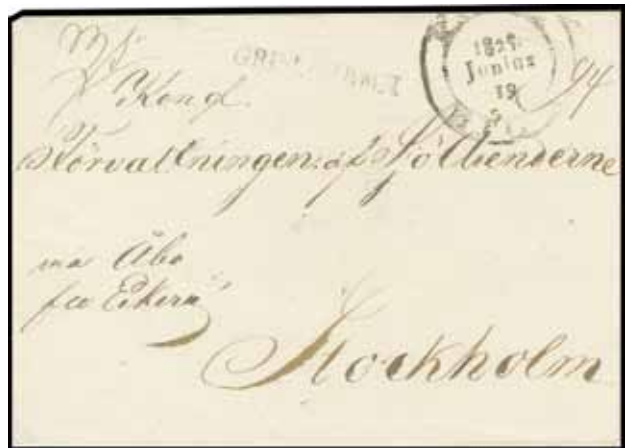 Junius
19
94
Kongl.
Förvaltningen af Sjöärenderne
via Åbo
fco Eckerö
Stockholm